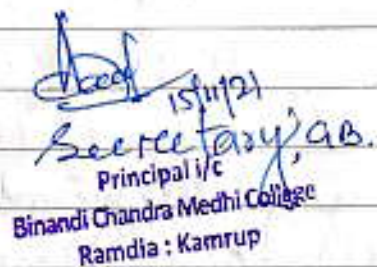 15/11/21
Secretary, GB.
Principal i/c
Binandi Chandra Medhi College
Ramdia : Kamrup